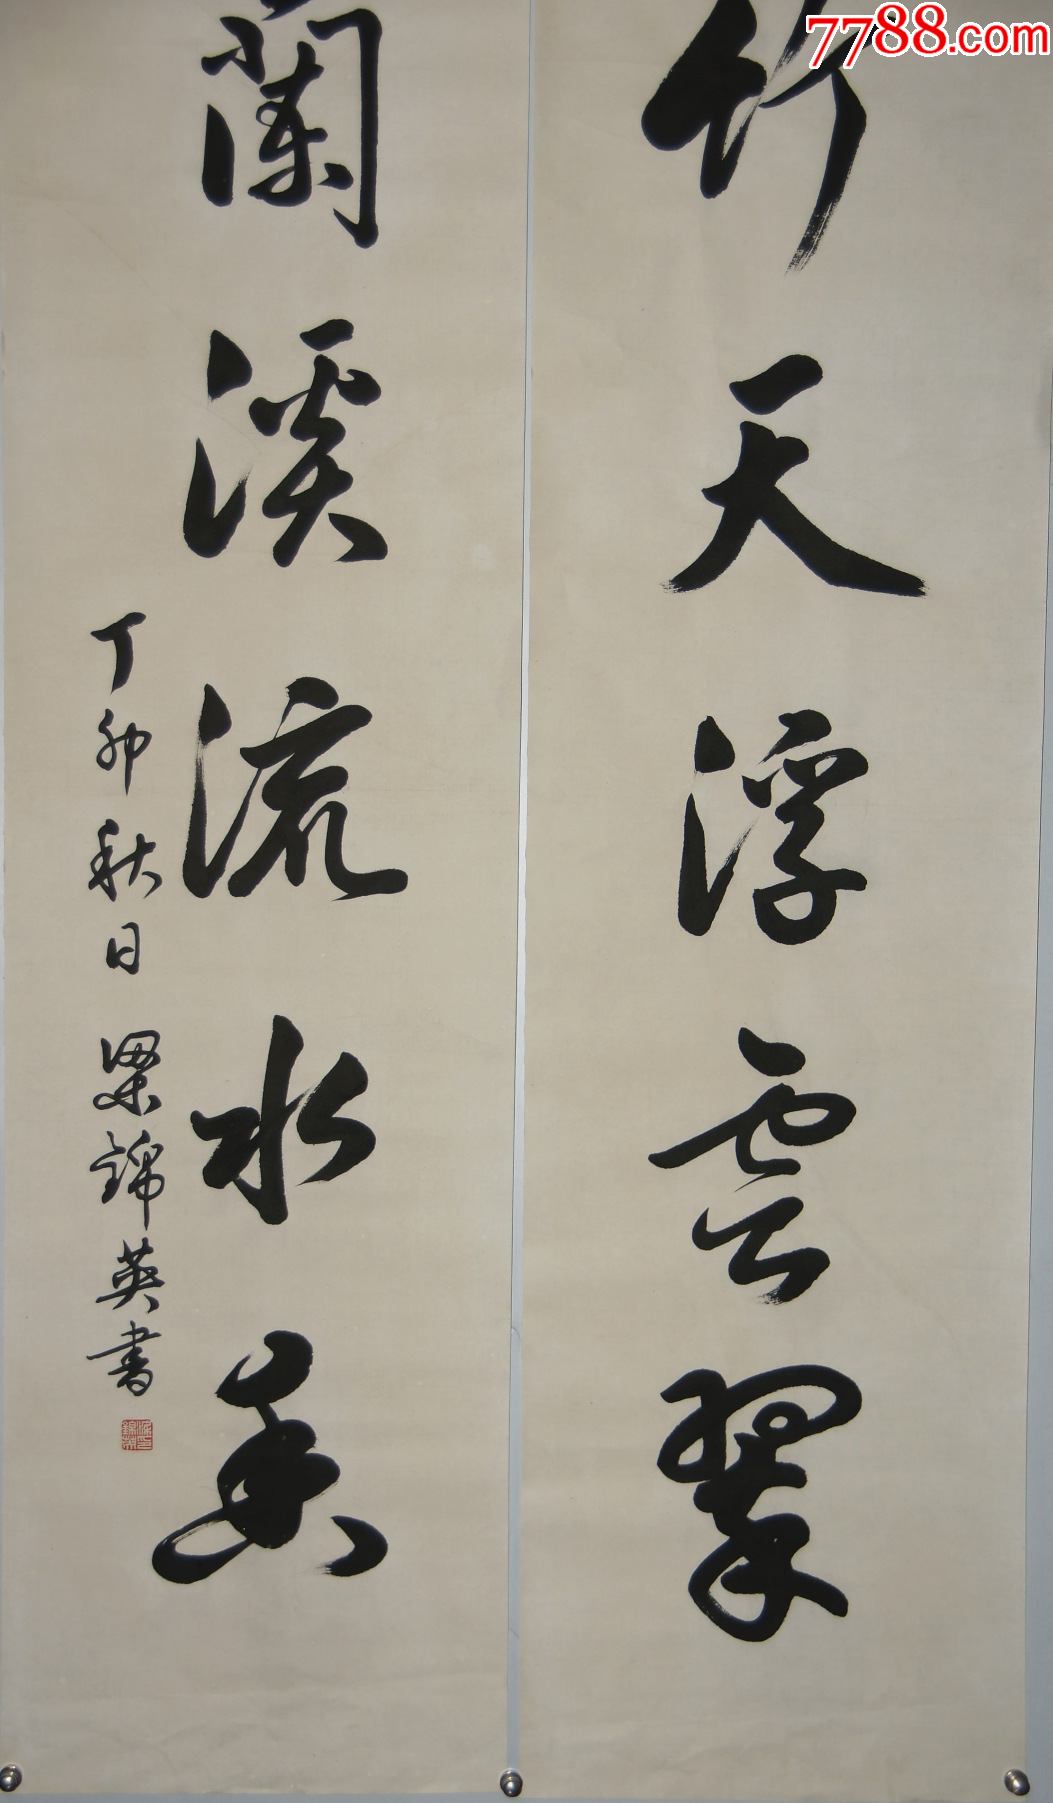 7788.com
竹天浮雲翠
蘭溪流水香
丁卯秋日 梁錦英書